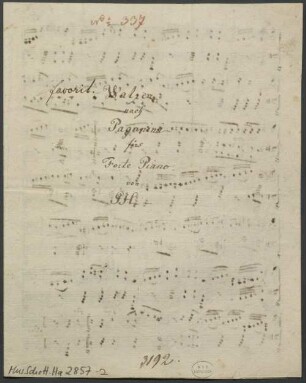 No 307
favorit. Walzer
nach
Paganini
für
Forte Piano
von
Mus.Schott.Ha 2857-2
3192.